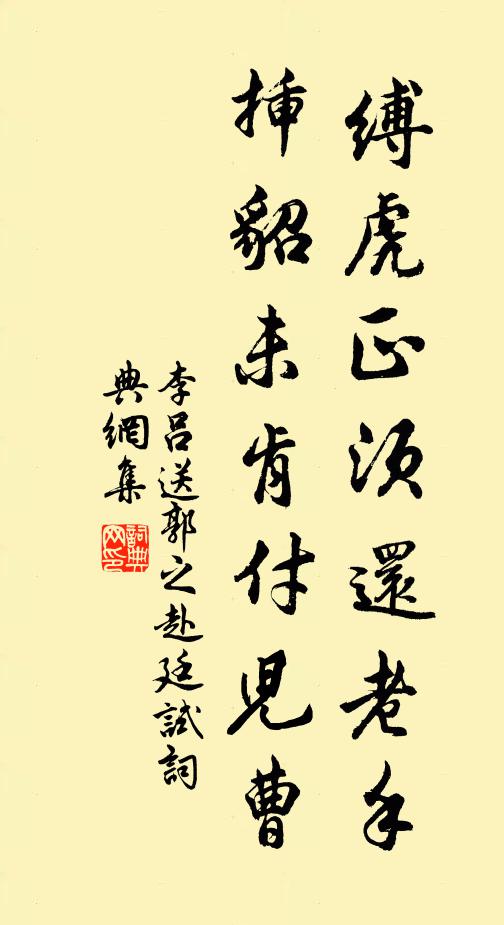 縛虎正須還老手
揷貂未肯付兒曹
李呂送郭之赴廷試詞
典網集
詞典網印